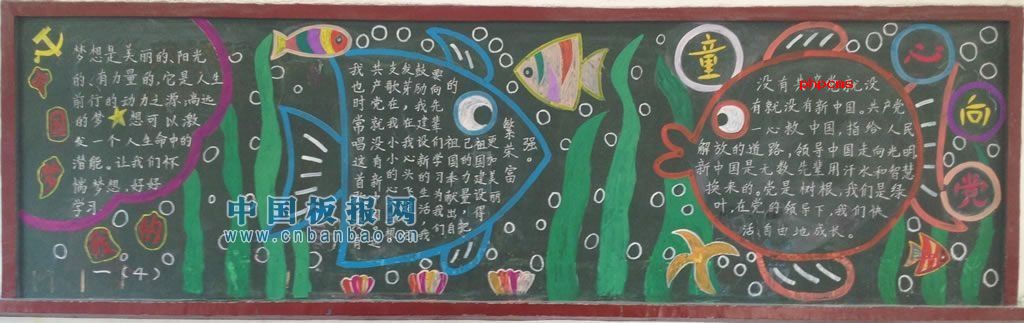 梦想是美丽的、阳光
的、有力量的,它是人生
前行的动力之源,高远
的梦想可以激
发一个人生命中的
潜能。让我们怀
揣梦想,好好
学习
国
梦
我的
一(4)
我也时常唱这首
共产党就没有新
支歌在我小小的心
鼓励我建设新的生活,我
要向先辈们学习为我们
的祖国奉献出自
己的力量,把
祖国建设得
更加美丽
繁荣富
强。
童心向党
没有共产党就没
phpcms
有就没有新中国。共产党
一心救中国,指给人民
解放的道路,领导中国走向光明
新中国是无数先辈用汗水和智慧
换来的。党是树根,我们是绿
叶,在党的领导下,我们快
活、自由地成长。
中国板报网
www.cnbanbao.cn